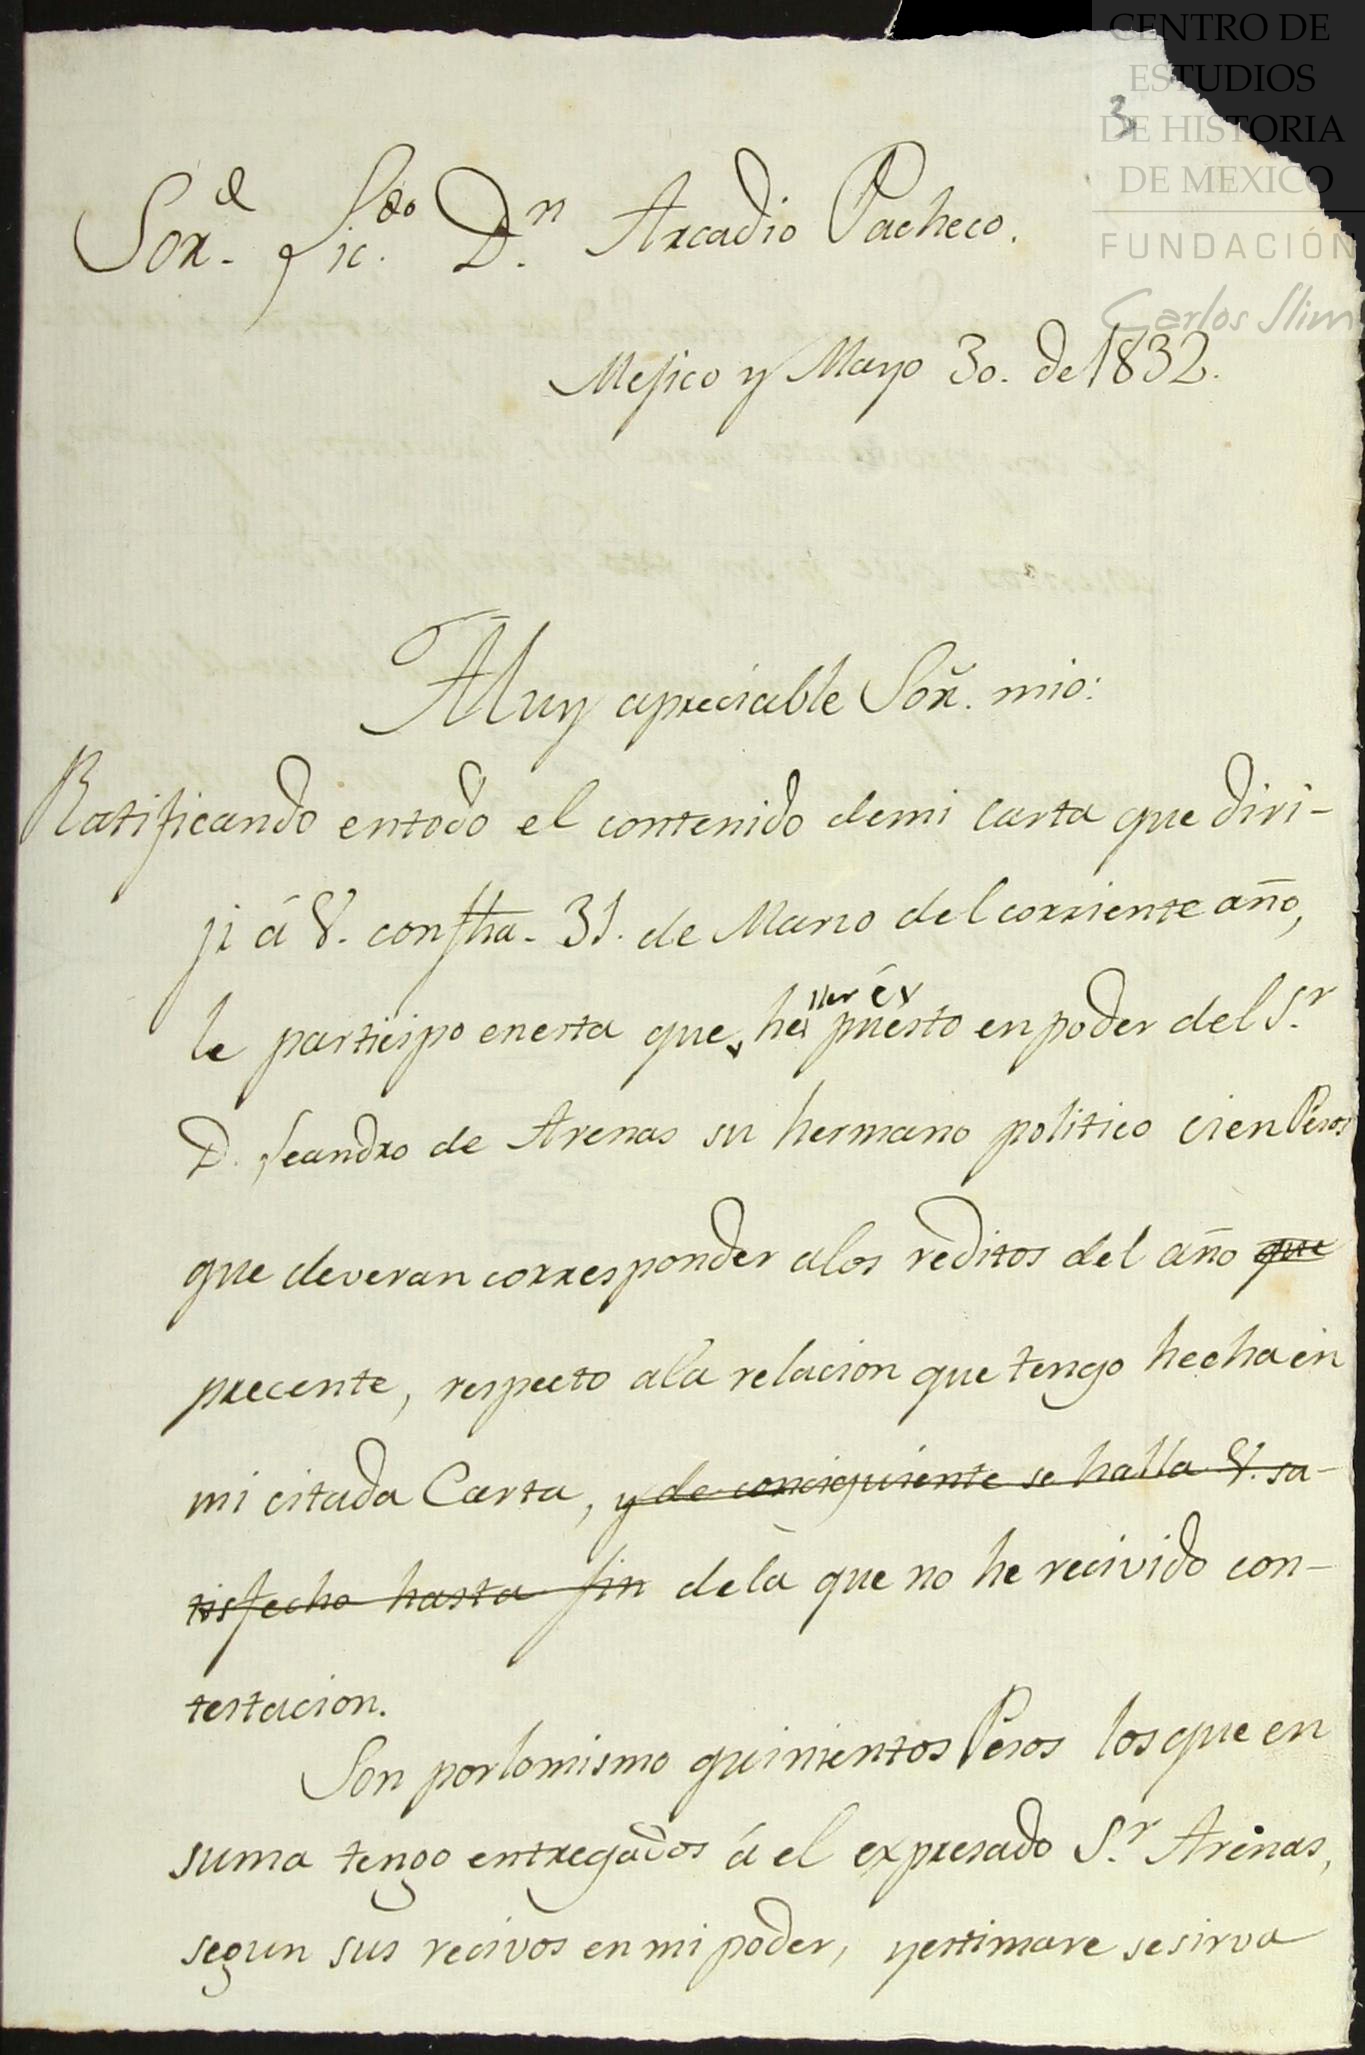 CENTRO DE
ESTUDIOS
DE HISTORIA
DE MEXICO
FUNDACIÓN
Carlos Slim
3
Sor. Lic.do Dn. Arcadio Pacheco.
Mejico y Mayo 30. de 1832.
Muy apreciable Sor. mio:
Ratificando entodo el contenido demi carta que diri-
ji á V. con fha. 31. de Marzo del corriente año,
le participo enesta que he puesto en poder del Sr.
D. Leandro de Arenas su hermano politico cien Pesos
que deveran corresponder alos reditos del año que
precente, respecto ala relacion que tengo hecha en
mi citada Carta, y de conciguiente se halla V. sa-
tisfecho hasta fin dela que no he recivido con-
testacion.
Son porlomismo quinientos Pesos los que en
suma tengo entregados á el expresado Sr. Arenas,
segun sus recivos en mi poder, yestimare sesirva